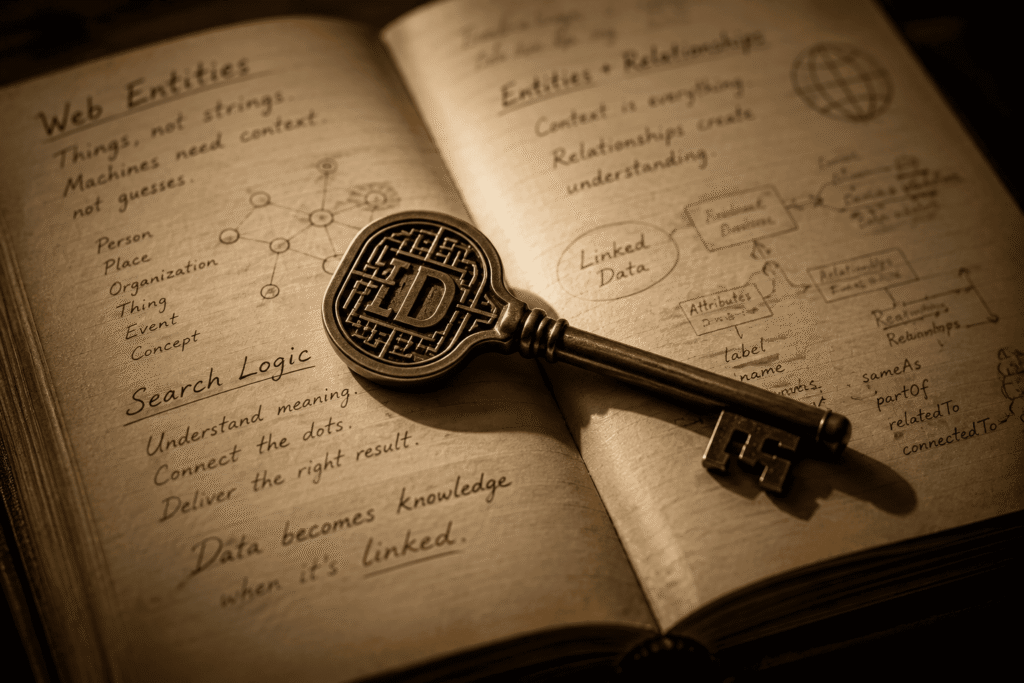 Web Entities
Things, not strings
Machines need context.
not guesses.
Person
Place
Organization
Thing
Event
Concept
Search Logic
Understand meaning.
Connect the dots.
Deliver the right result.
Data becomes knowledge
when it's linked.
ID
Entities + Relationships
Context is everything
Relationships create
understanding.
Linked
Data
Attributes
label
name
Relationships
sameAs
partOf
relatedTo
connectedTo